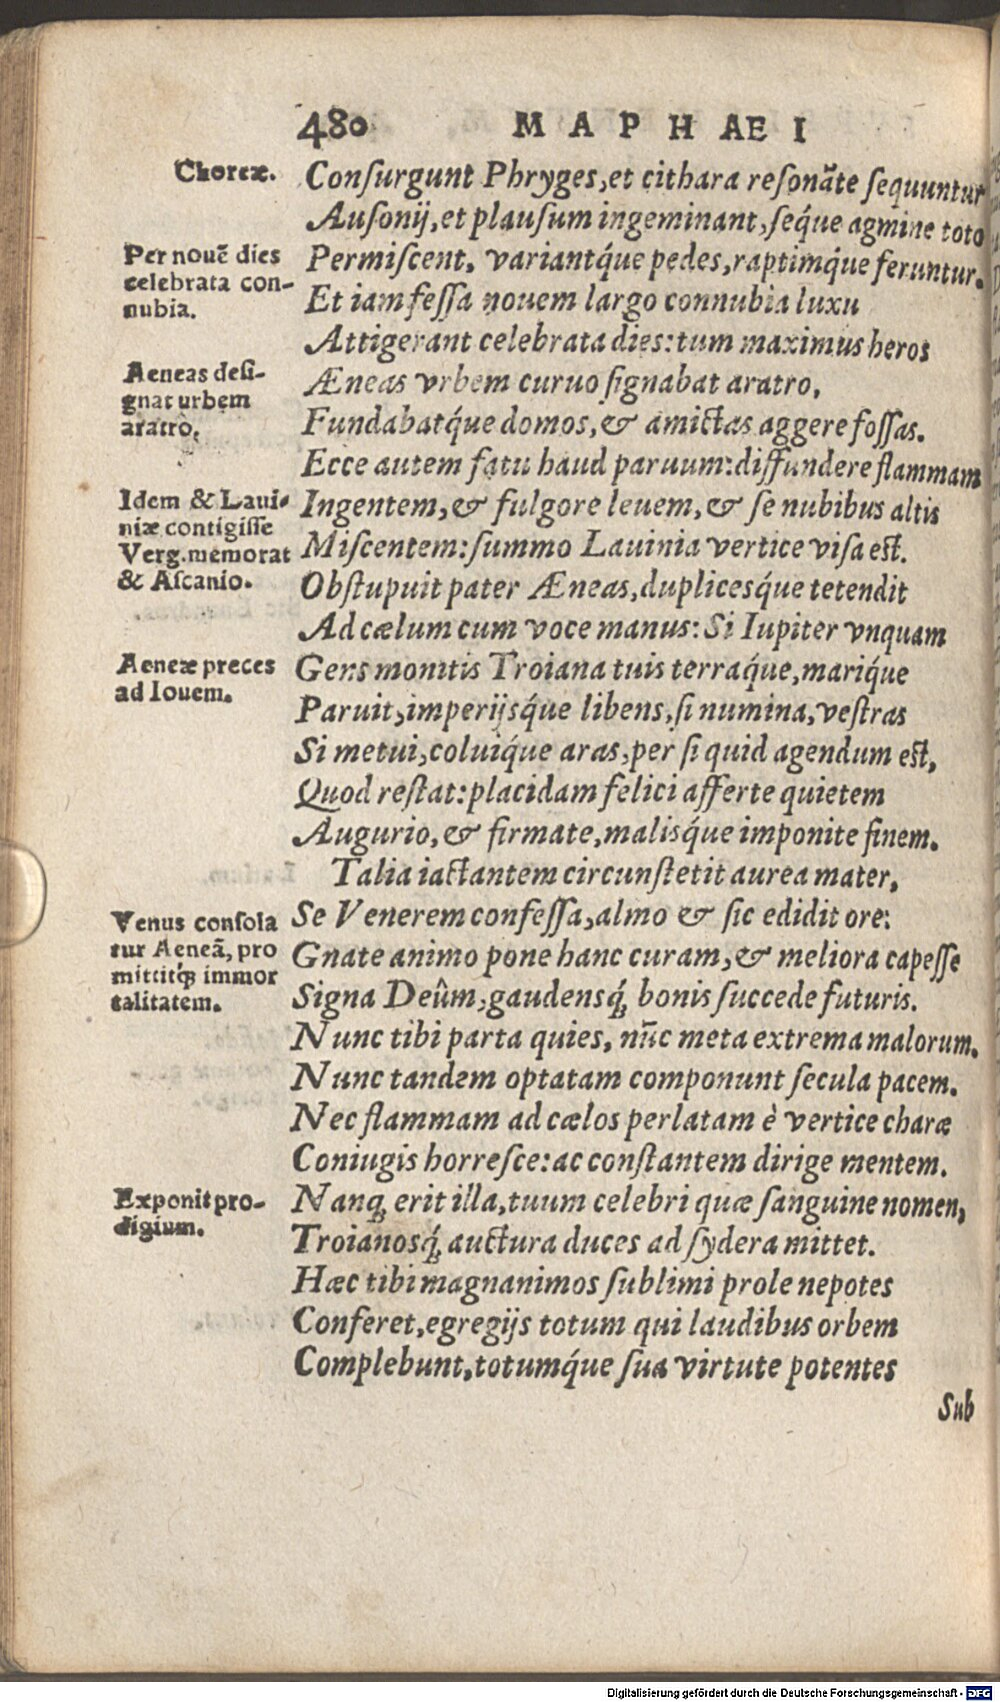 480 MAPHAEI
Choreæ.
Conſurgunt Phryges, et cithara reſonāte ſequuntur
Auſonij, et plauſum ingeminant, ſeq́ue agmine toto
Per nouē dies
celebrata con-
nubia.
Permiſcent. variantq́ue pedes, raptimq́ue feruntur.
Et iam feſſa nouem largo connubia luxu
Attigerant celebrata dies: tum maximus heros
Aeneas deſi-
gnat urbem
aratro.
Æneas vrbem curuo ſignabat aratro,
Fundabatq́ue domos, & amictas aggere foſſas.
Ecce autem fatu haud paruum: diffundere flammam
Idem & Laui-
niæ contigiſſe
Verg. memorat
& Aſcanio.
Ingentem, & fulgore leuem, & ſe nubibus altis
Miſcentem: ſummo Lauinia vertice viſa eſt.
Obſtupuit pater Æneas, duplicesq́ue tetendit
Ad cælum cum voce manus: Si Iupiter vnquam
Aeneæ preces
ad Iouem.
Gens monitis Troiana tuis terraq́ue, mariq́ue
Paruit, imperijsq́ue libens, ſi numina, veſtras
Si metui, coluiq́ue aras, per ſi quid agendum eſt,
Quod reſtat: placidam felici afferte quietem
Augurio, & firmate, malisq́ue imponite finem.
Talia iactantem circunſtetit aurea mater,
Venus conſola
tur Aeneā, pro
mittitq́ꝫ immor
talitatem.
Se Venerem confeſſa, almo & ſic edidit ore:
Gnate animo pone hanc curam, & meliora capeſſe
Signa Deûm, gaudensq́ꝫ bonis ſuccede futuris.
Nunc tibi parta quies, nūc meta extrema malorum.
Nunc tandem optatam componunt ſecula pacem.
Nec flammam ad cælos perlatam è vertice charæ
Coniugis horreſce: ac conſtantem dirige mentem.
Exponit pro-
digium.
Nanqꝫ erit illa, tuum celebri quæ ſanguine nomen,
Troianosq́ꝫ auctura duces ad ſydera mittet.
Hæc tibi magnanimos ſublimi prole nepotes
Conferet, egregijs totum qui laudibus orbem
Complebunt, totumq́ue ſua virtute potentes
Sub
Digitalisierung gefördert durch die Deutsche Forschungsgemeinschaft - DFG